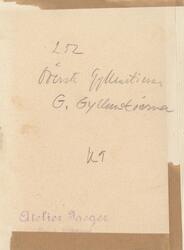 252
Överste Gyllenstierna
G. Gyllenstierna
KT
Atelier Jaeger